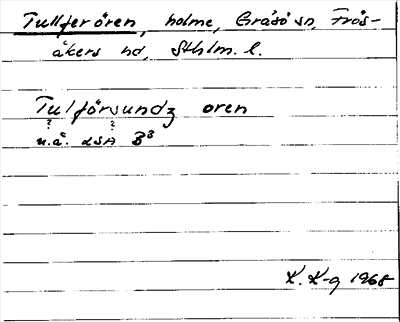 Tullferören, holme, Gräsö sn, Frös-
åkers hd, Sthlm. l.
Tulförsundz oren
? ?
u.å. LSA B³
K. K-g 1968